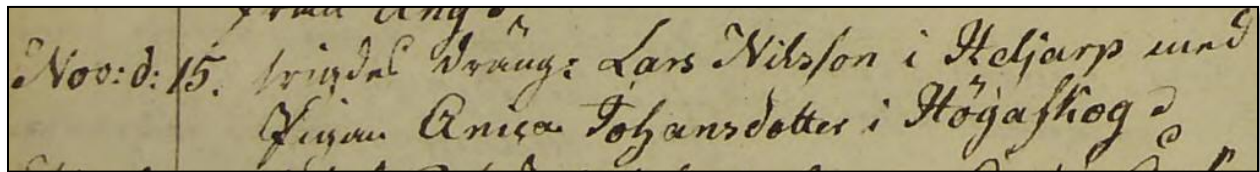 från Äng
Nov: d: 15. vigdes Dräng: Lars Nilsson i Heljarp med
Pigan Anica Johansdotter i Högaskog